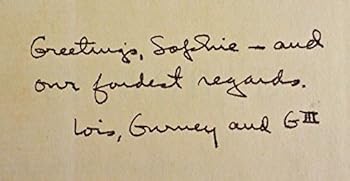 Greetings, Sophie — and
our fondest regards.
Lois, Gurney and GIII